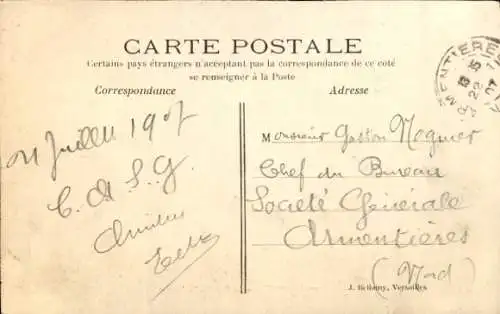 CARTE POSTALE
Certains pays étrangers n'acceptant pas la correspondance de ce côté
se renseigner à la Poste
Correspondance
Adresse
Juillet 1907
Monsieur Gaston
Chef du Bureau
Société Générale
Armentières
(Nord)
J. Bellamy, Versailles